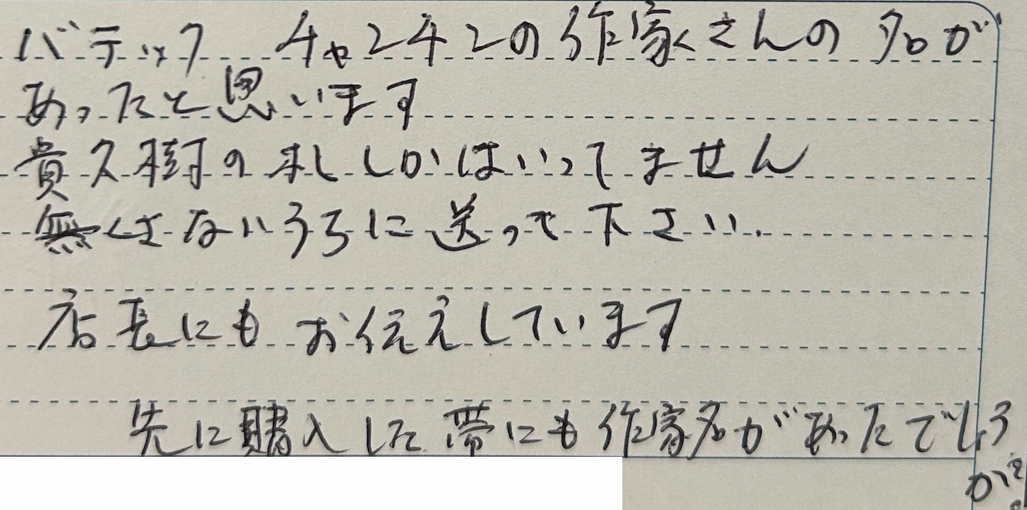 バティック チャンチンの作家さんの名が
あったと思います
貴久樹の札しかはいってません
無くさないうちに送って下さい.
店長にもお伝えしています
先に購入した帯にも作家名があったでしょう
か?